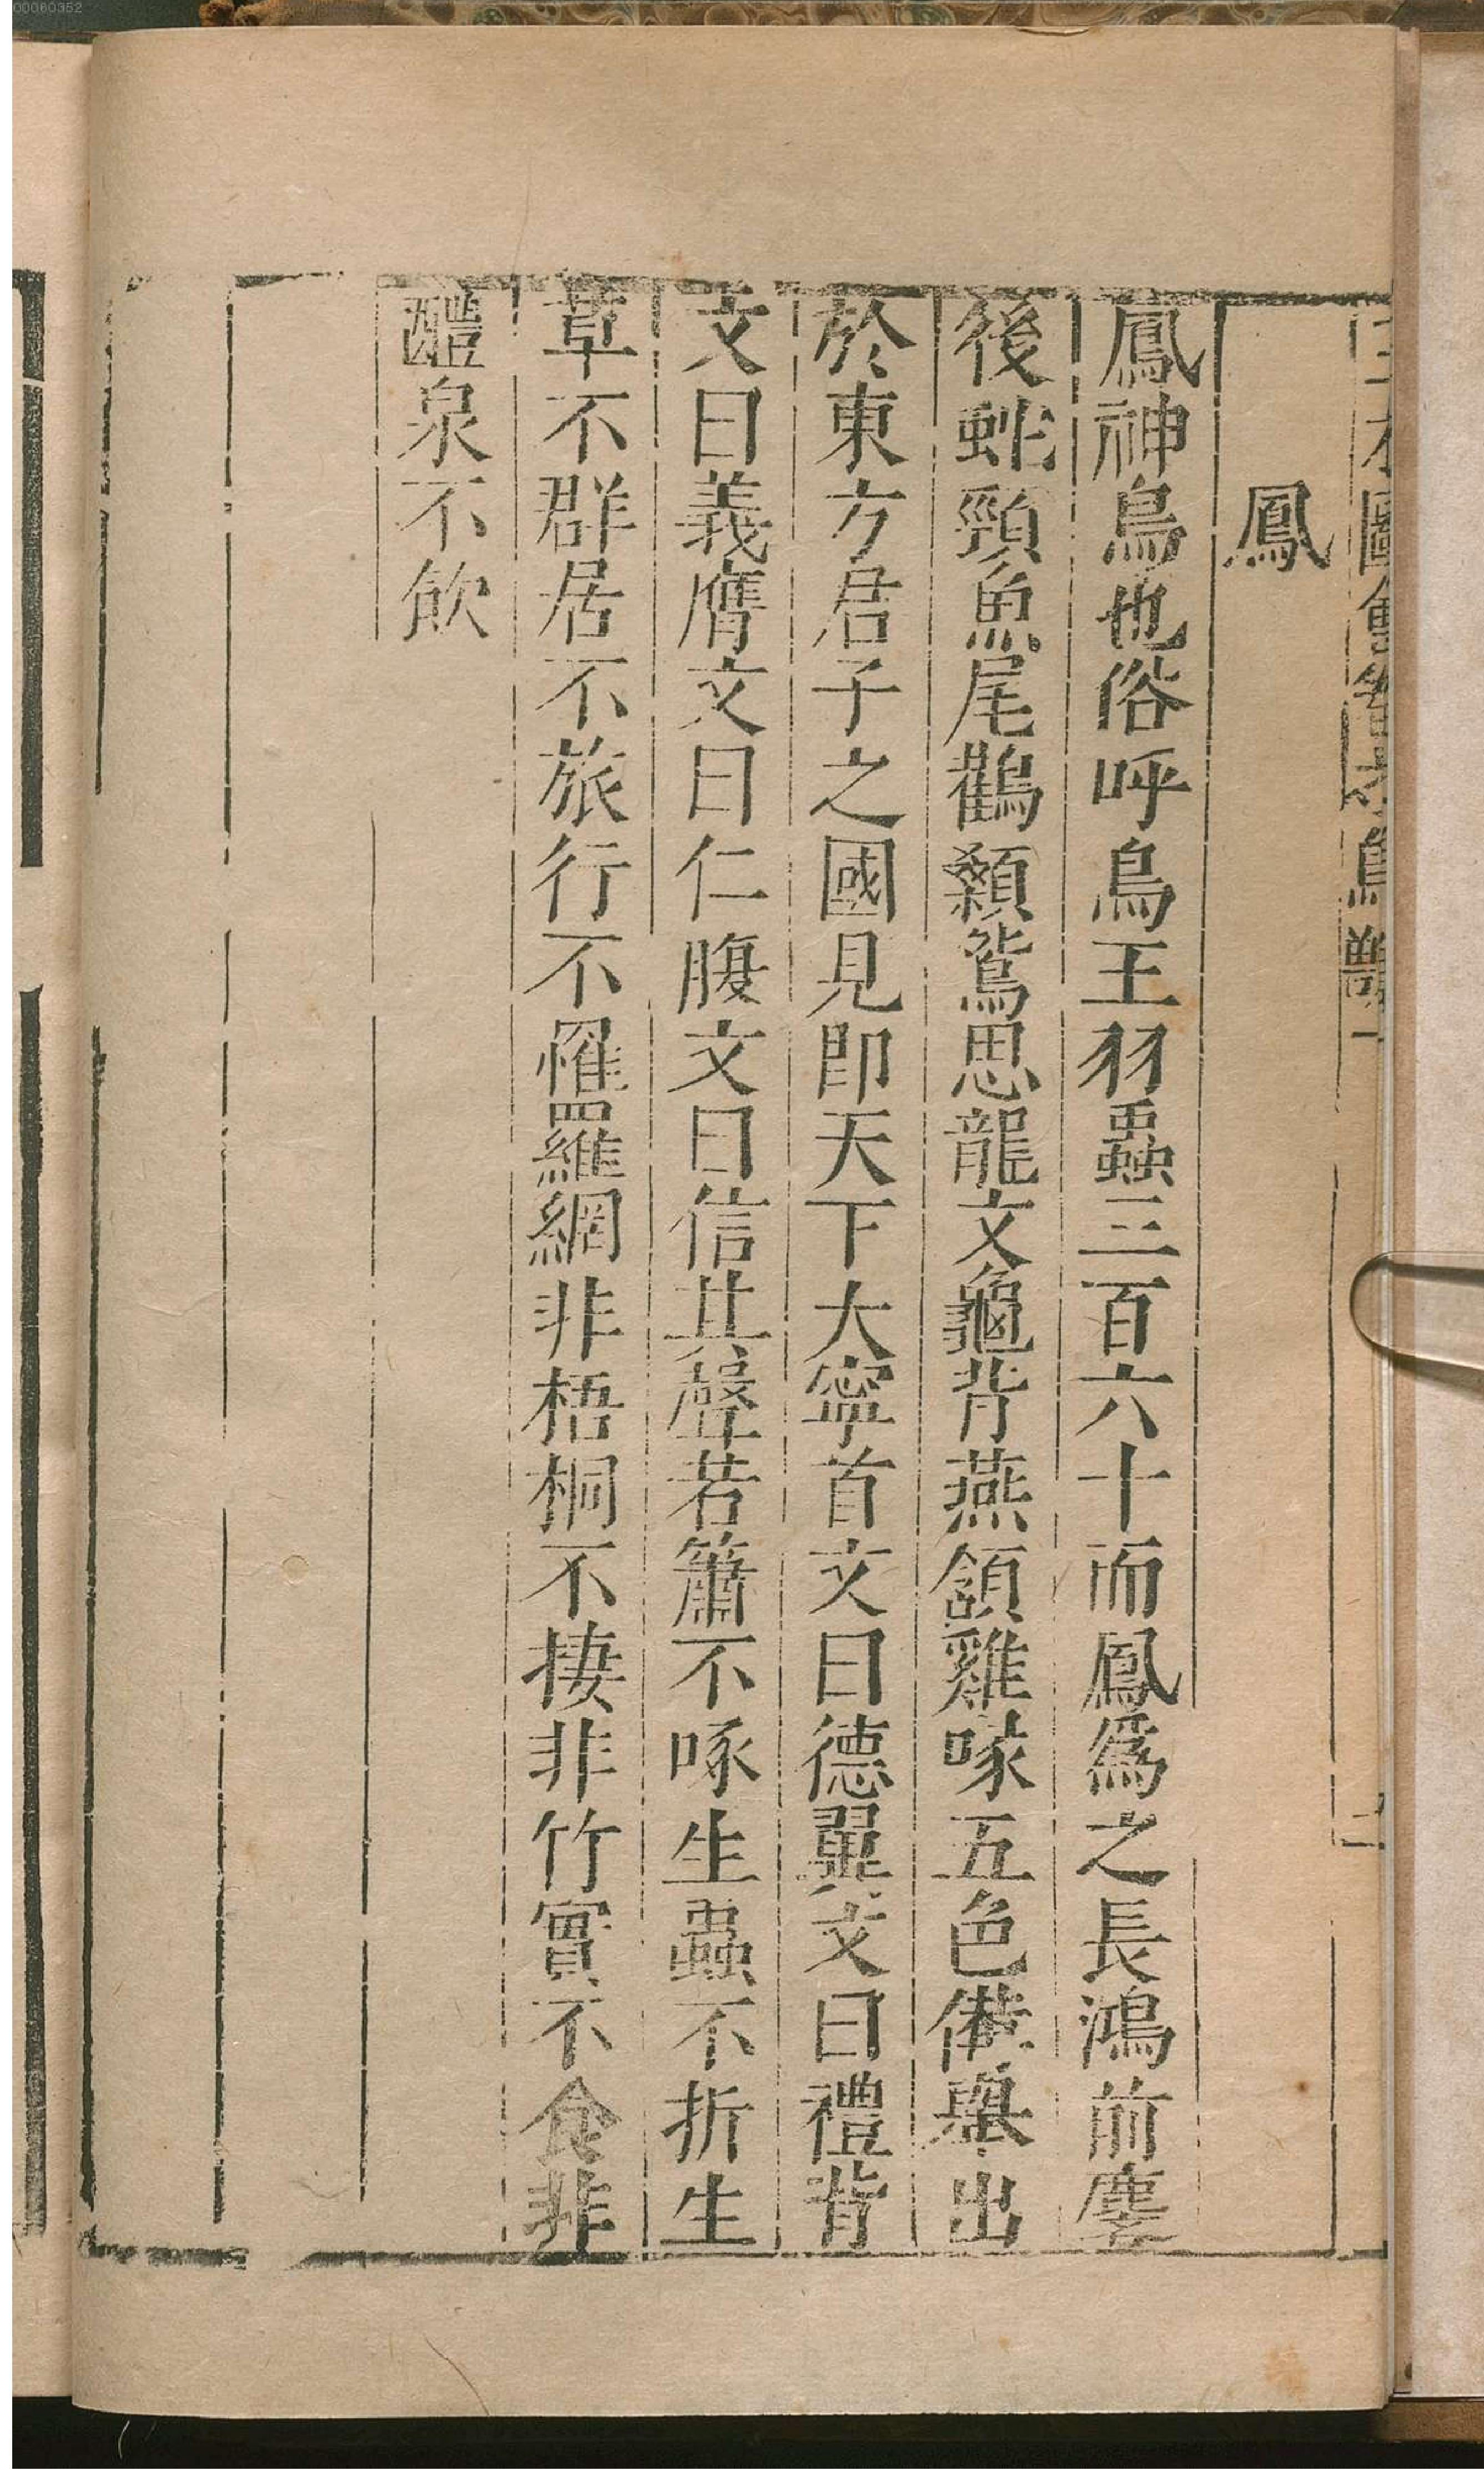 00060352
鳳
鳳神鳥也俗呼鳥王羽蟲三百六十而鳳爲之長鴻前麐
後蛇頸魚尾鸛顙鴛思龍文龜背燕頷雞啄五色備舉出
於東方君子之國見卽天下大寧首文曰德翼文曰禮背
文曰義膺文曰仁腹文曰信其聲若簫不啄生蟲不折生
草不群居不旅行不罹羅網非梧桐不捿非竹實不食非
醴泉不飲